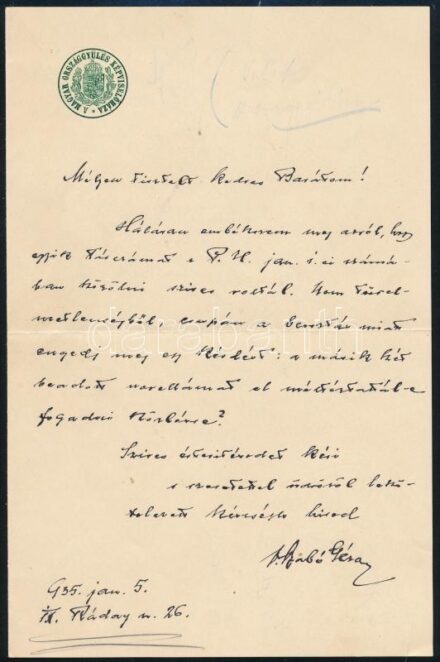 A MAGYAR ORSZÁGGYÜLÉS KÉPVISELŐHÁZA
Mélyen tisztelt kedves Barátom!
Hálásan emlékezem meg arról, hogy
egyik tárcámat a P. H. jan. i számá-
ban közölni szíves voltál. Nem türel-
metlenségből, csupán a miatt
engedj meg egy kérdést: a másik két
beadott novellámat el méltóztatál-e
fogadni közlésre?
Szíves értesítésedet kéri
s szeretettel üdvözöl lekö-
telezett híved
Szabó Géza
935. jan. 5.
IX. Ráday u. 26.
darabanth